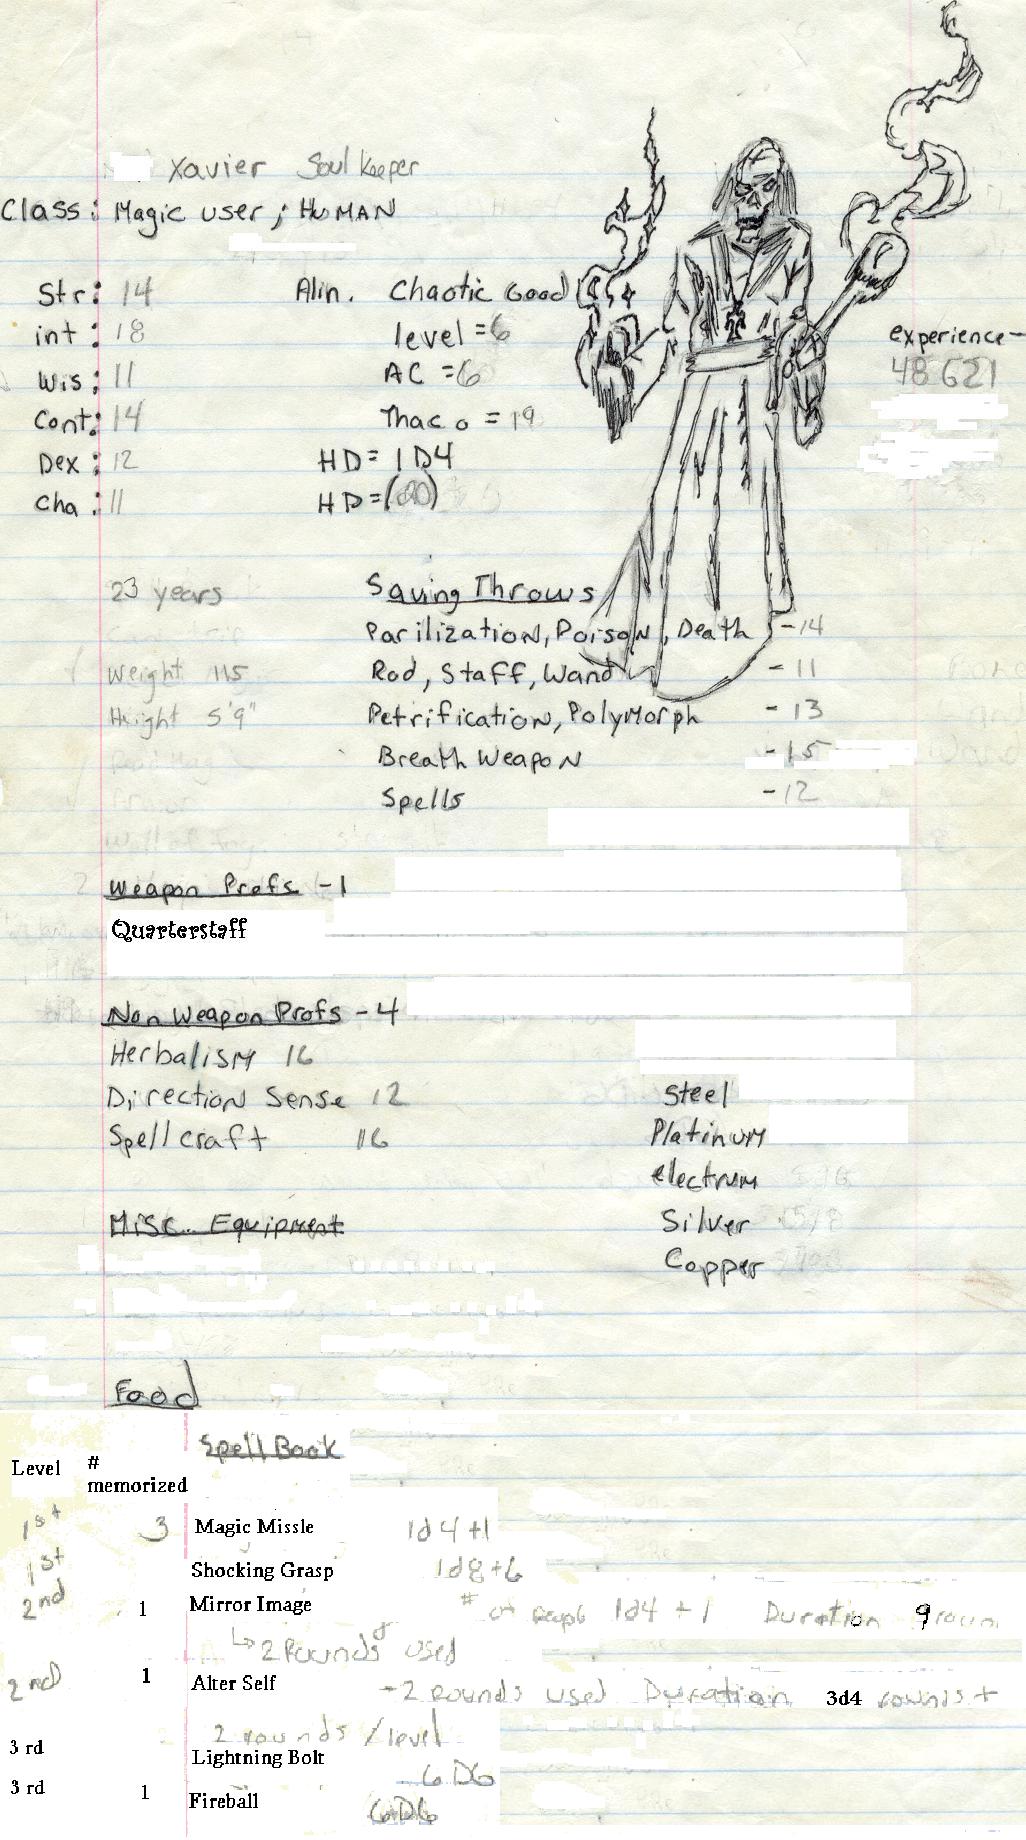 Xavier Soul Keeper
Class: Magic user ; HUMAN
Str: 14 Alin. Chaotic Good
int : 18 level = 6 experience-
Wis ; 11 AC = 6 48 621
Cont: 14 Thac o = 19
Dex : 12 HD = 1D4
Cha : 11 HD =
23 years Saving Throws
Parilization, Poison, Death -14
Weight 115 Rod, Staff, Wand - 11
Height 5'9" Petrification, Polymorph - 13
Breath Weapon -15
Spells -12
Weapon Profs -1
Quarterstaff
Non Weapon Profs - 4
Herbalism 16
Direction Sense 12 Steel
Spellcraft 16 Platinum
electrum
Misc. Equipment Silver
Copper
Food
Spell Book
Level # memorized
1st 3 Magic Missle 1d4 +1
1st Shocking Grasp 1d8+6
2nd 1 Mirror Image # of 1d4 + 1 Duration 9 roun
↳ 2 Rounds used
2nd 1 Alter Self -2 rounds used Duration 3d4 rounds +
2 rounds / level
3 rd Lightning Bolt 6D6
3 rd 1 Fireball 6D6